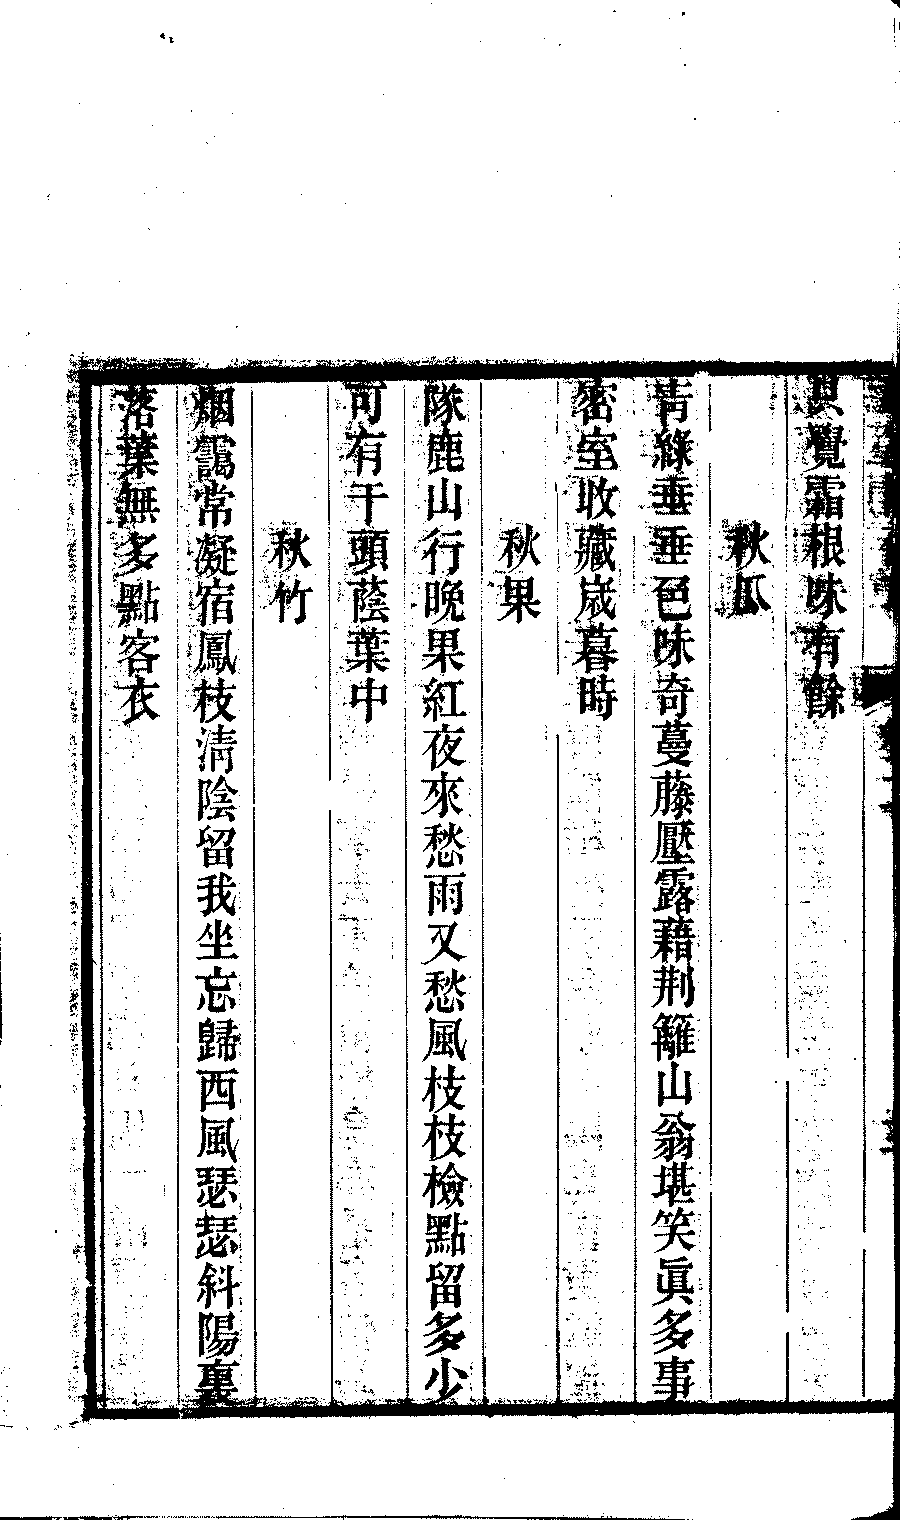 覺霜根味有餘
秋瓜
青綠垂垂色味奇蔓藤壓露藉荆籬山翁堪笑眞多事
密室收藏歲暮時
秋果
隊鹿山行晚果紅夜來愁雨又愁風枝枝檢點留多少
可有千頭蔭葉中
秋竹
烟靄常凝宿鳳枝淸陰留我坐忘歸西風瑟瑟斜陽裏
落葉無多點客衣